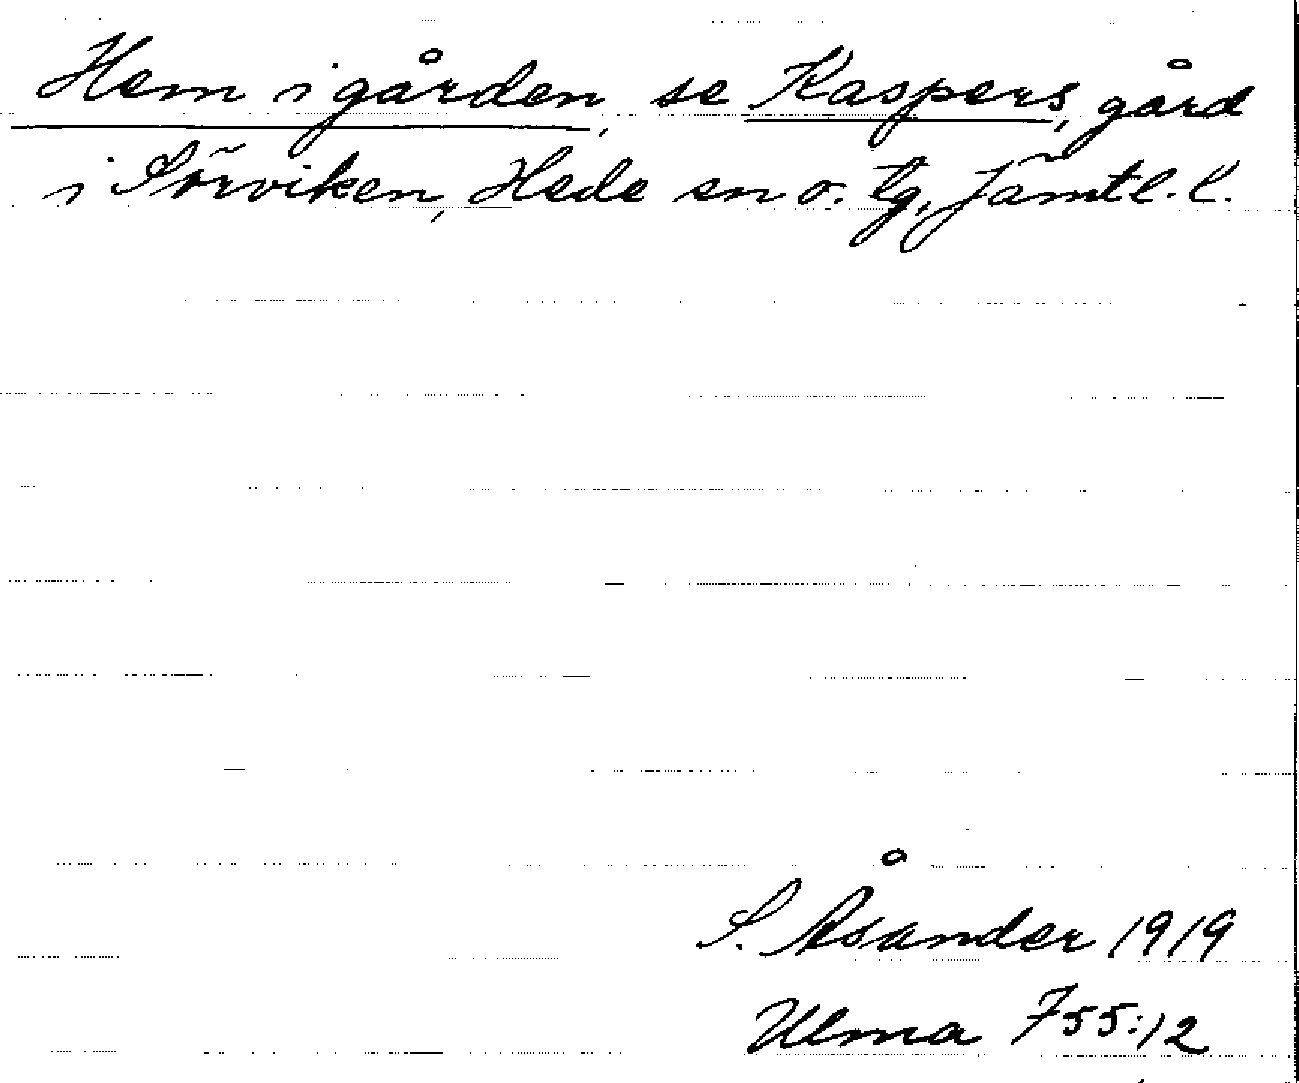 Hem i gården, se Kaspers, gård
i Sörviken, Hede sn o. tg, Jämtl. l.
S. Åsander 1919
Ulma 755:12